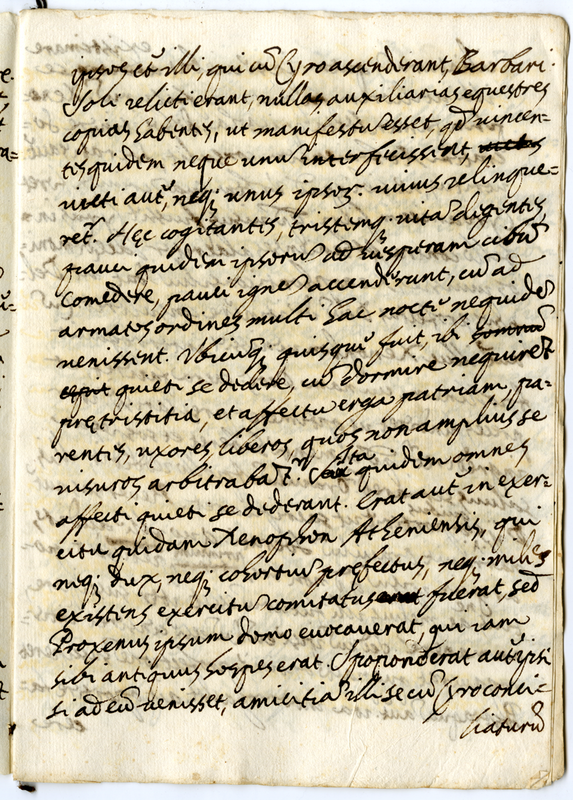 ipsos cũ illi, qui cũ Cyro ascenderant, Barbari.
Soli relicti erant, nullas auxiliarias equestres
copias habentes, ut manifestũ esset, qđ vincen-
tes quidem neque unũ interfecissent,
victi aut̃, neq; unus ipsoꝝ vivus relinque-
ret̃. Hęc cogitantes, tristemq; vitã degentes,
pauci quidem ipsorũ ad vesperam cibũ
comedere, pauci ignẽ accenderunt, cũ ad
armatos ordines multi hac noctu nequidẽ
venissent. Ubicũq; quisquẽ fuit, ibi
quieti se dedere, cũ dormire nequiret
pre tristitia, et affectu erga patriam, pa-
rentes, uxores, liberos, quos non amplius se
visuros arbitrabat̃.
ita quidem omnes
affecti quieti se dederant. Erat aut̃ in exer-
citu quidam Xenophon Atheniensis, qui
neq; dux, neq; cohortiũ prefectus, neq; miles
existens exercitũ comitatus fuerat, sed
Proxenus ipsum domo evocaverat, qui iam
sibi antiquus hospes erat. Spoponderat aut̃ ipsi
si ad eũ venisset, amicitiã illi se cũ Cyro conci-
liaturũ